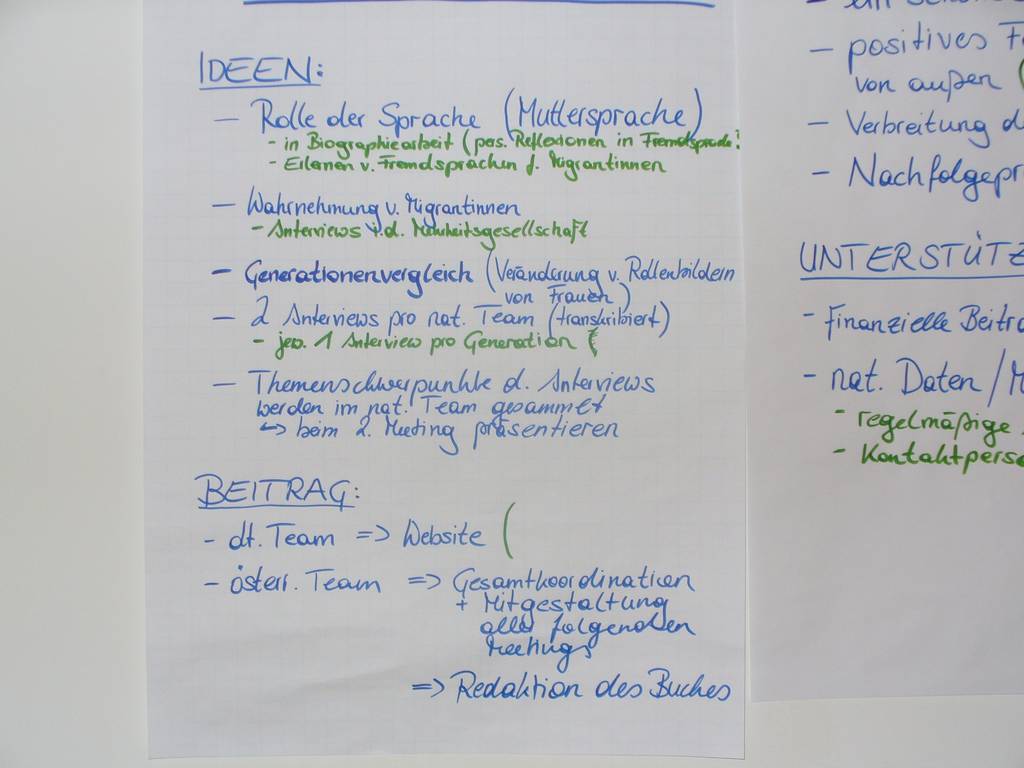 IDEEN:
– Rolle der Sprache (Muttersprache)
- in Biographiearbeit (pos. Reflexionen in Fremdsprache?
- Erlenen v. Fremdsprachen f. Migrantinnen
– Wahrnehmung v. Migrantinnen
- Interviews i.d. Mehrheitsgesellschaft
– Generationenvergleich (Veränderung v. Rollenbildern
von Frauen)
– 2 Interviews pro nat. Team (transkribiert)
- jew. 1 Interview pro Generation (
– Themenschwerpunkte d. Interviews
werden im nat. Team gesammelt
↪ beim 2. Meeting präsentieren
BEITRAG:
- dt. Team => Website (
- österr. Team => Gesamtkoordination
+ Mitgestaltung
aller folgenden
Meetings
=> Redaktion des Buches
– positives F
von außen (
– Verbreitung d
– Nachfolgepr
UNTERSTÜTZ
- Finanzielle Beitra
- nat. Daten / M
- regelmäßige
- Kontaktperso